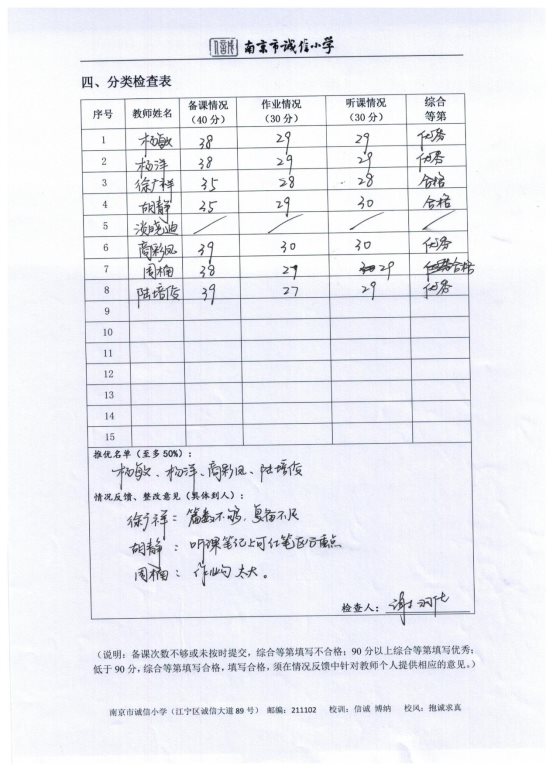 南京市诚信小学
四、分类检查表
序号 教师姓名 备课情况（40分） 作业情况（30分） 听课情况（30分） 综合等第
1 杨敏 38 29 29 优秀
2 杨洋 38 29 29 优秀
3 徐广祥 35 28 28 合格
4 胡静 35 29 30 合格
5 淡晓迪
6 商彩凤 39 30 30 优秀
7 周楠 38 27 29 合格
8 陆培俊 39 27 29 优秀
9
10
11
12
13
14
15
推优名单（至多50%）：
杨敏、杨洋、商彩凤、陆培俊
情况反馈、整改意见（具体到人）：
徐广祥：篇数不够，复备不足
胡静：听课笔记上可红笔区分重点
周楠：作业勾太大。
检查人：谢
（说明：备课次数不够或未按时提交，综合等第填写不合格；90分以上综合等第填写优秀；
低于90分，综合等第填写合格，填写合格，须在情况反馈中针对教师个人提供相应的意见。）
南京市诚信小学（江宁区诚信大道89号） 邮编：211102 校训：信诚 博纳 校风：抱诚求真